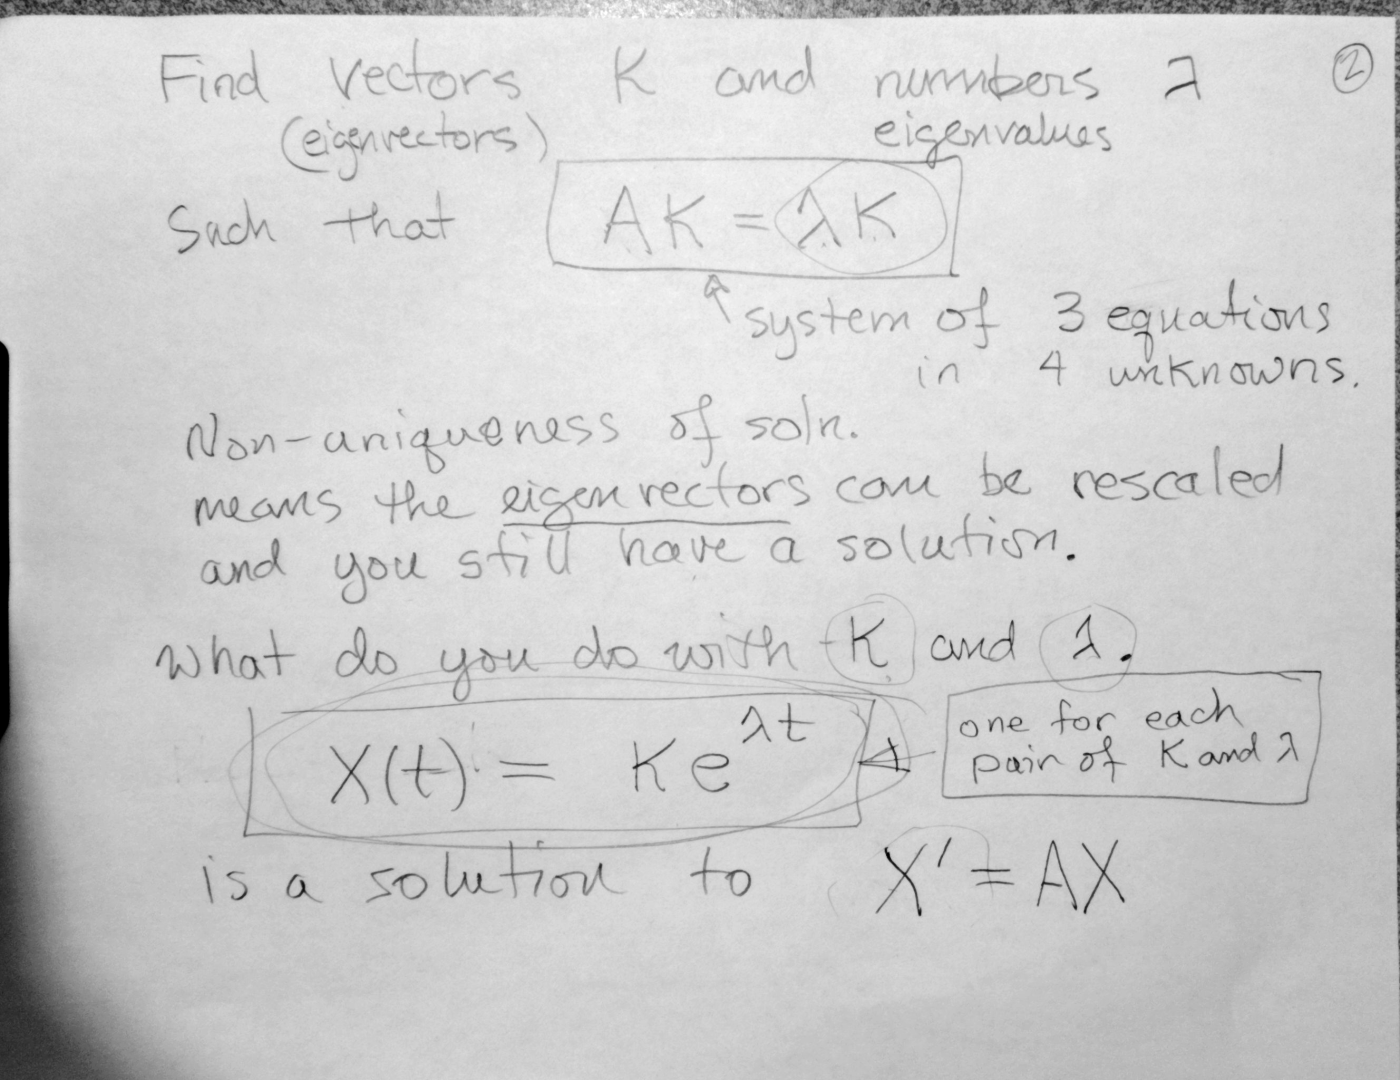 Find vectors K and numbers λ ②
(eigenvectors) eigenvalues
Such that AK = λK
system of 3 equations
in 4 unknowns.
Non-uniqueness of soln.
means the eigenvectors can be rescaled
and you still have a solution.
What do you do with K and λ.
X(t) = Ke^{λt}
one for each
pair of K and λ
is a solution to X' = AX